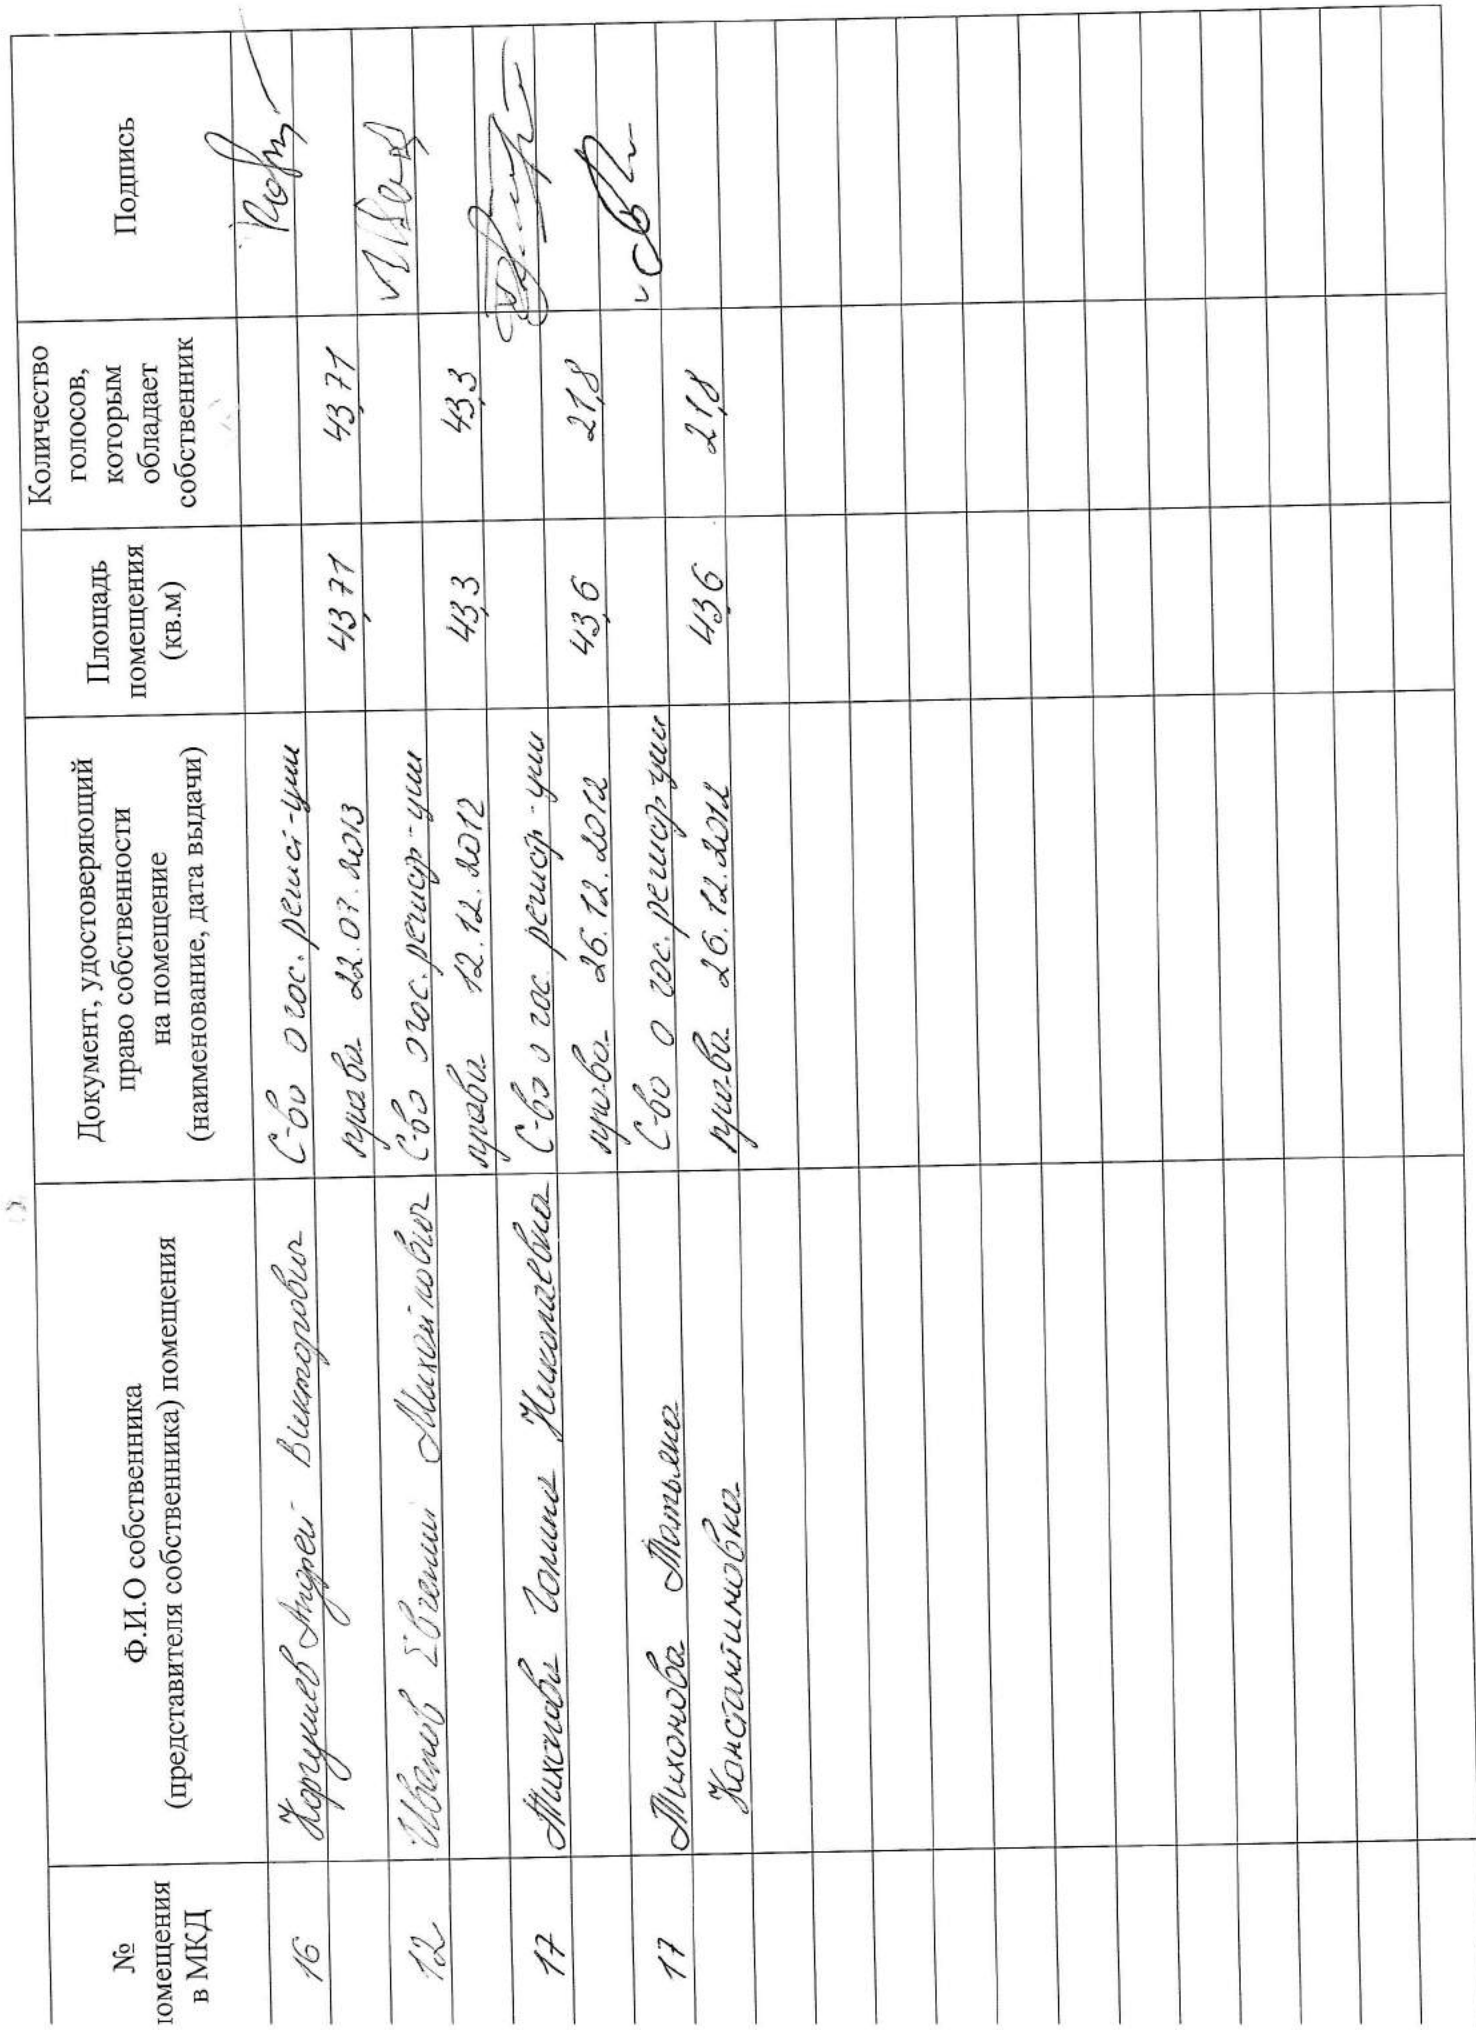 №
помещения
в МКД
Ф.И.О собственника
(представителя собственника) помещения
Документ, удостоверяющий
право собственности
на помещение
(наименование, дата выдачи)
Площадь
помещения
(кв.м)
Количество
голосов,
которым
обладает
собственник
Подпись
16 Андрей Викторович С-во о гос. регист-ции
права 22.07.2013 43,71 43,71
12 Иванов Евгений Михайлович С-во о гос. регистр-ции
права 12.12.2012 43,3 43,3
17 Тихонова Галина Николаевна С-во о гос. регистр-ции
права 26.12.2012 43,6 21,8
17 Тихонова Татьяна С-во о гос. регистр-ции
Константиновна права 26.12.2012 43,6 21,8